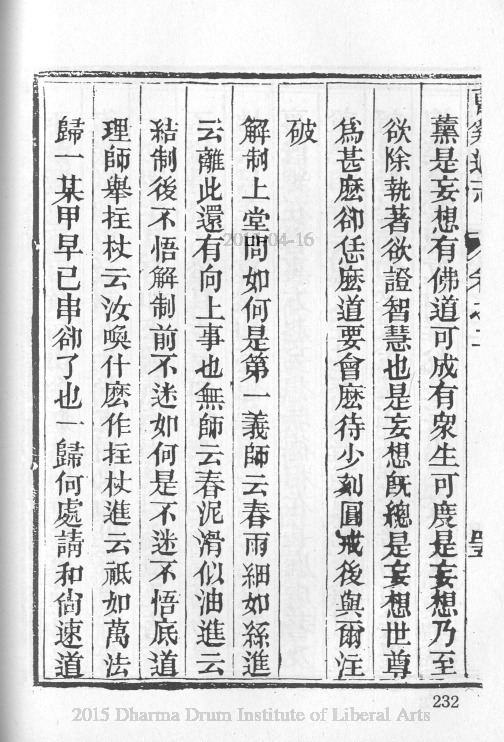 薰是妄想有佛道可成有衆生可度是妄想乃至
欲除執著欲證智慧也是妄想旣總是妄想世尊
爲甚麽卻恁麽道要會麽待少刻圓戒後與爾注
破
解制上堂問如何是第一義師云春雨細如絲進
云離此還有向上事也無師云春泥滑似油進云
結制後不悟解制前不迷如何是不迷不悟底道
理師舉拄杖云汝喚什麽作拄杖進云祗如萬法
歸一某甲早已串卻了也一歸何處請和尙速道
232
2015 Dharma Drum Institute of Liberal Arts